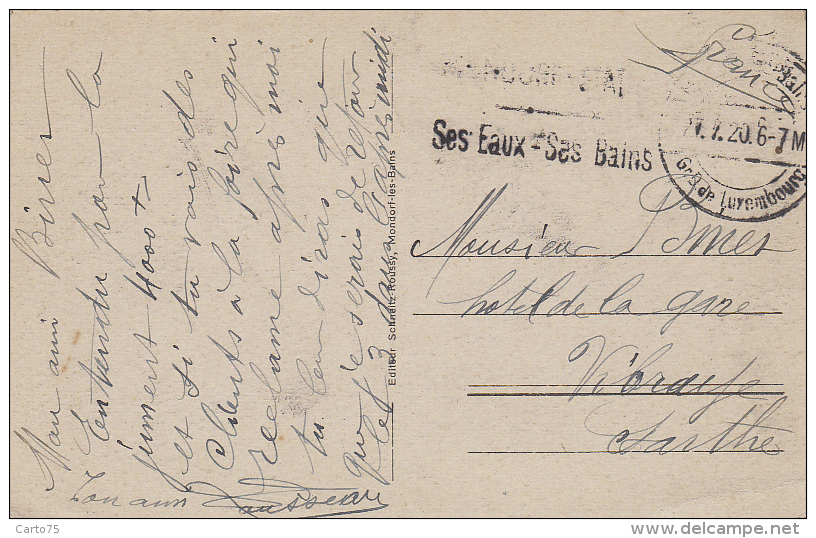 Mon ami Biner
Entendu pour la
jument 4000 +
et si tu vois des
Clients à la foire qui
réclame après moi
tu leur diras que
que je serais de retour
le 3 août après midi
Ton ami Rousseau
Editeur Schneitz-Roussy, Mondorf-les-Bains
MONDORF-ETAT
Ses Eaux - Ses Bains
7.20.6-7M
Gr.D de Luxembourg
France
Monsieur Biner
hotel de la gare
Vibraye
Sarthe
Carto75
delcampe.net